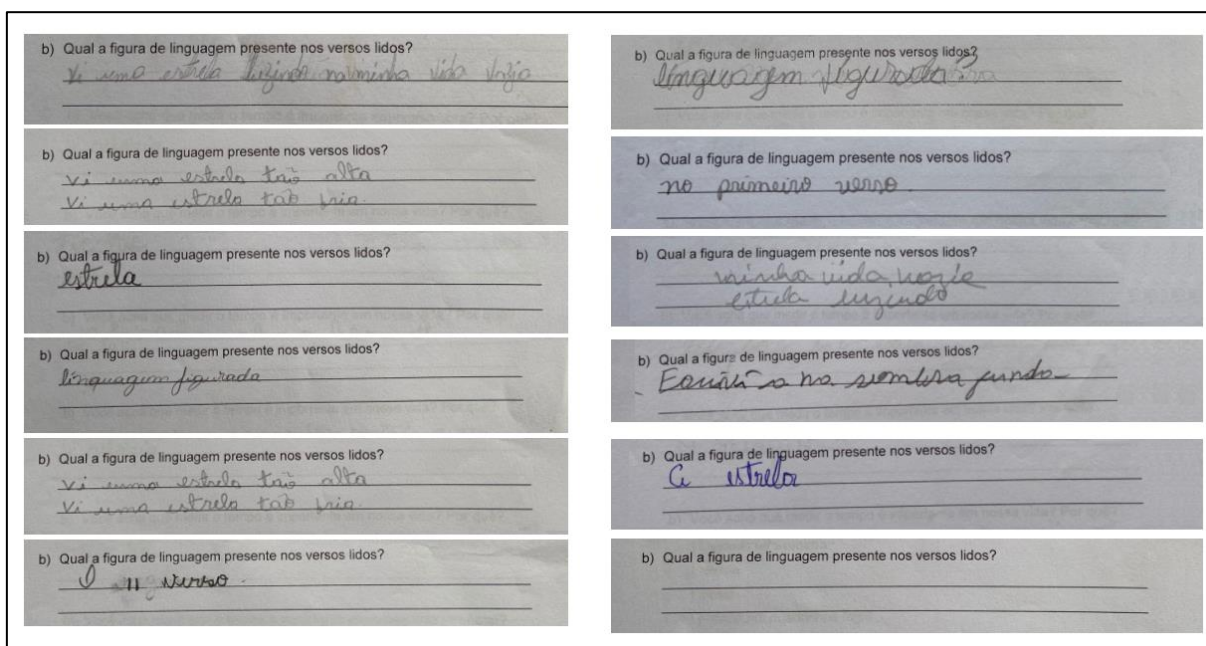 b) Qual a figura de linguagem presente nos versos lidos?
Vi uma estrela luzindo na minha vida vazia
b) Qual a figura de linguagem presente nos versos lidos?
Vi uma estrela tão alta
Vi uma estrela tão fria.
b) Qual a figura de linguagem presente nos versos lidos?
estrela
b) Qual a figura de linguagem presente nos versos lidos?
linguagem figurada
b) Qual a figura de linguagem presente nos versos lidos?
Vi uma estrela tão alta
Vi uma estrela tão fria.
b) Qual a figura de linguagem presente nos versos lidos?
verso.
b) Qual a figura de linguagem presente nos versos lidos?
linguagem figurada
b) Qual a figura de linguagem presente nos versos lidos?
no primeiro verso.
b) Qual a figura de linguagem presente nos versos lidos?
minha vida
estrela luzindo
b) Qual a figura de linguagem presente nos versos lidos?
na sombra
b) Qual a figura de linguagem presente nos versos lidos?
A estrela
b) Qual a figura de linguagem presente nos versos lidos?